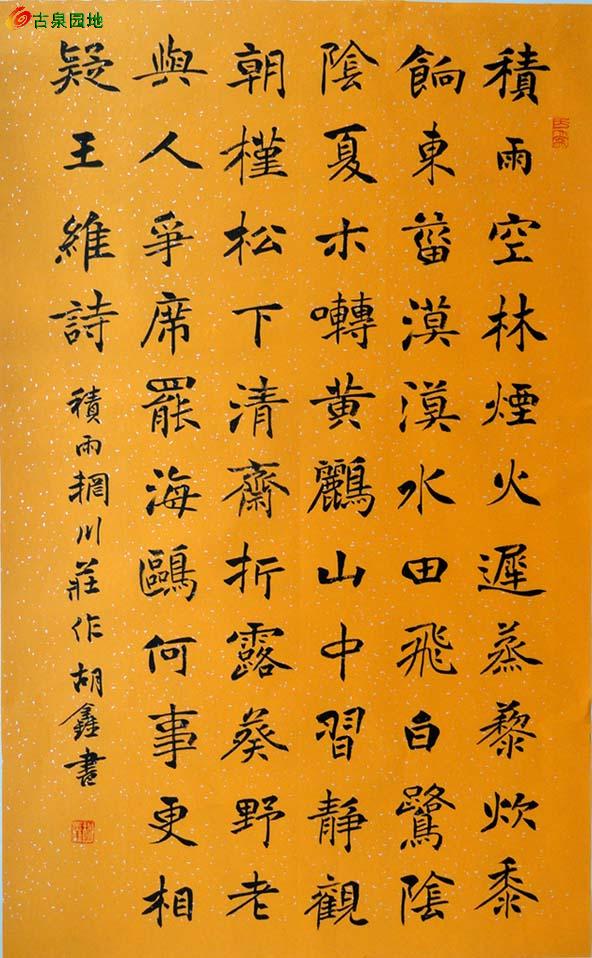 古泉园地
積雨空林煙火遲蒸黎炊黍
餉東菑漠漠水田飛白鷺陰
陰夏木囀黃鸝山中習靜觀
朝槿松下清齋折露葵野老
與人爭席罷海鷗何事更相
疑王維詩 積雨輞川莊作胡鑫書